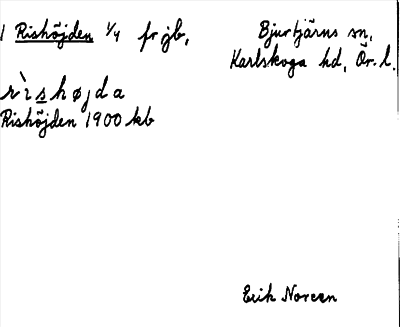 1 Rishöjden 1/4 fr jb,
Bjurtjärns sn,
Karlskoga hd, Ör. l.
rìshøjda
Rishöjden 1900 kb
Erik Noreen